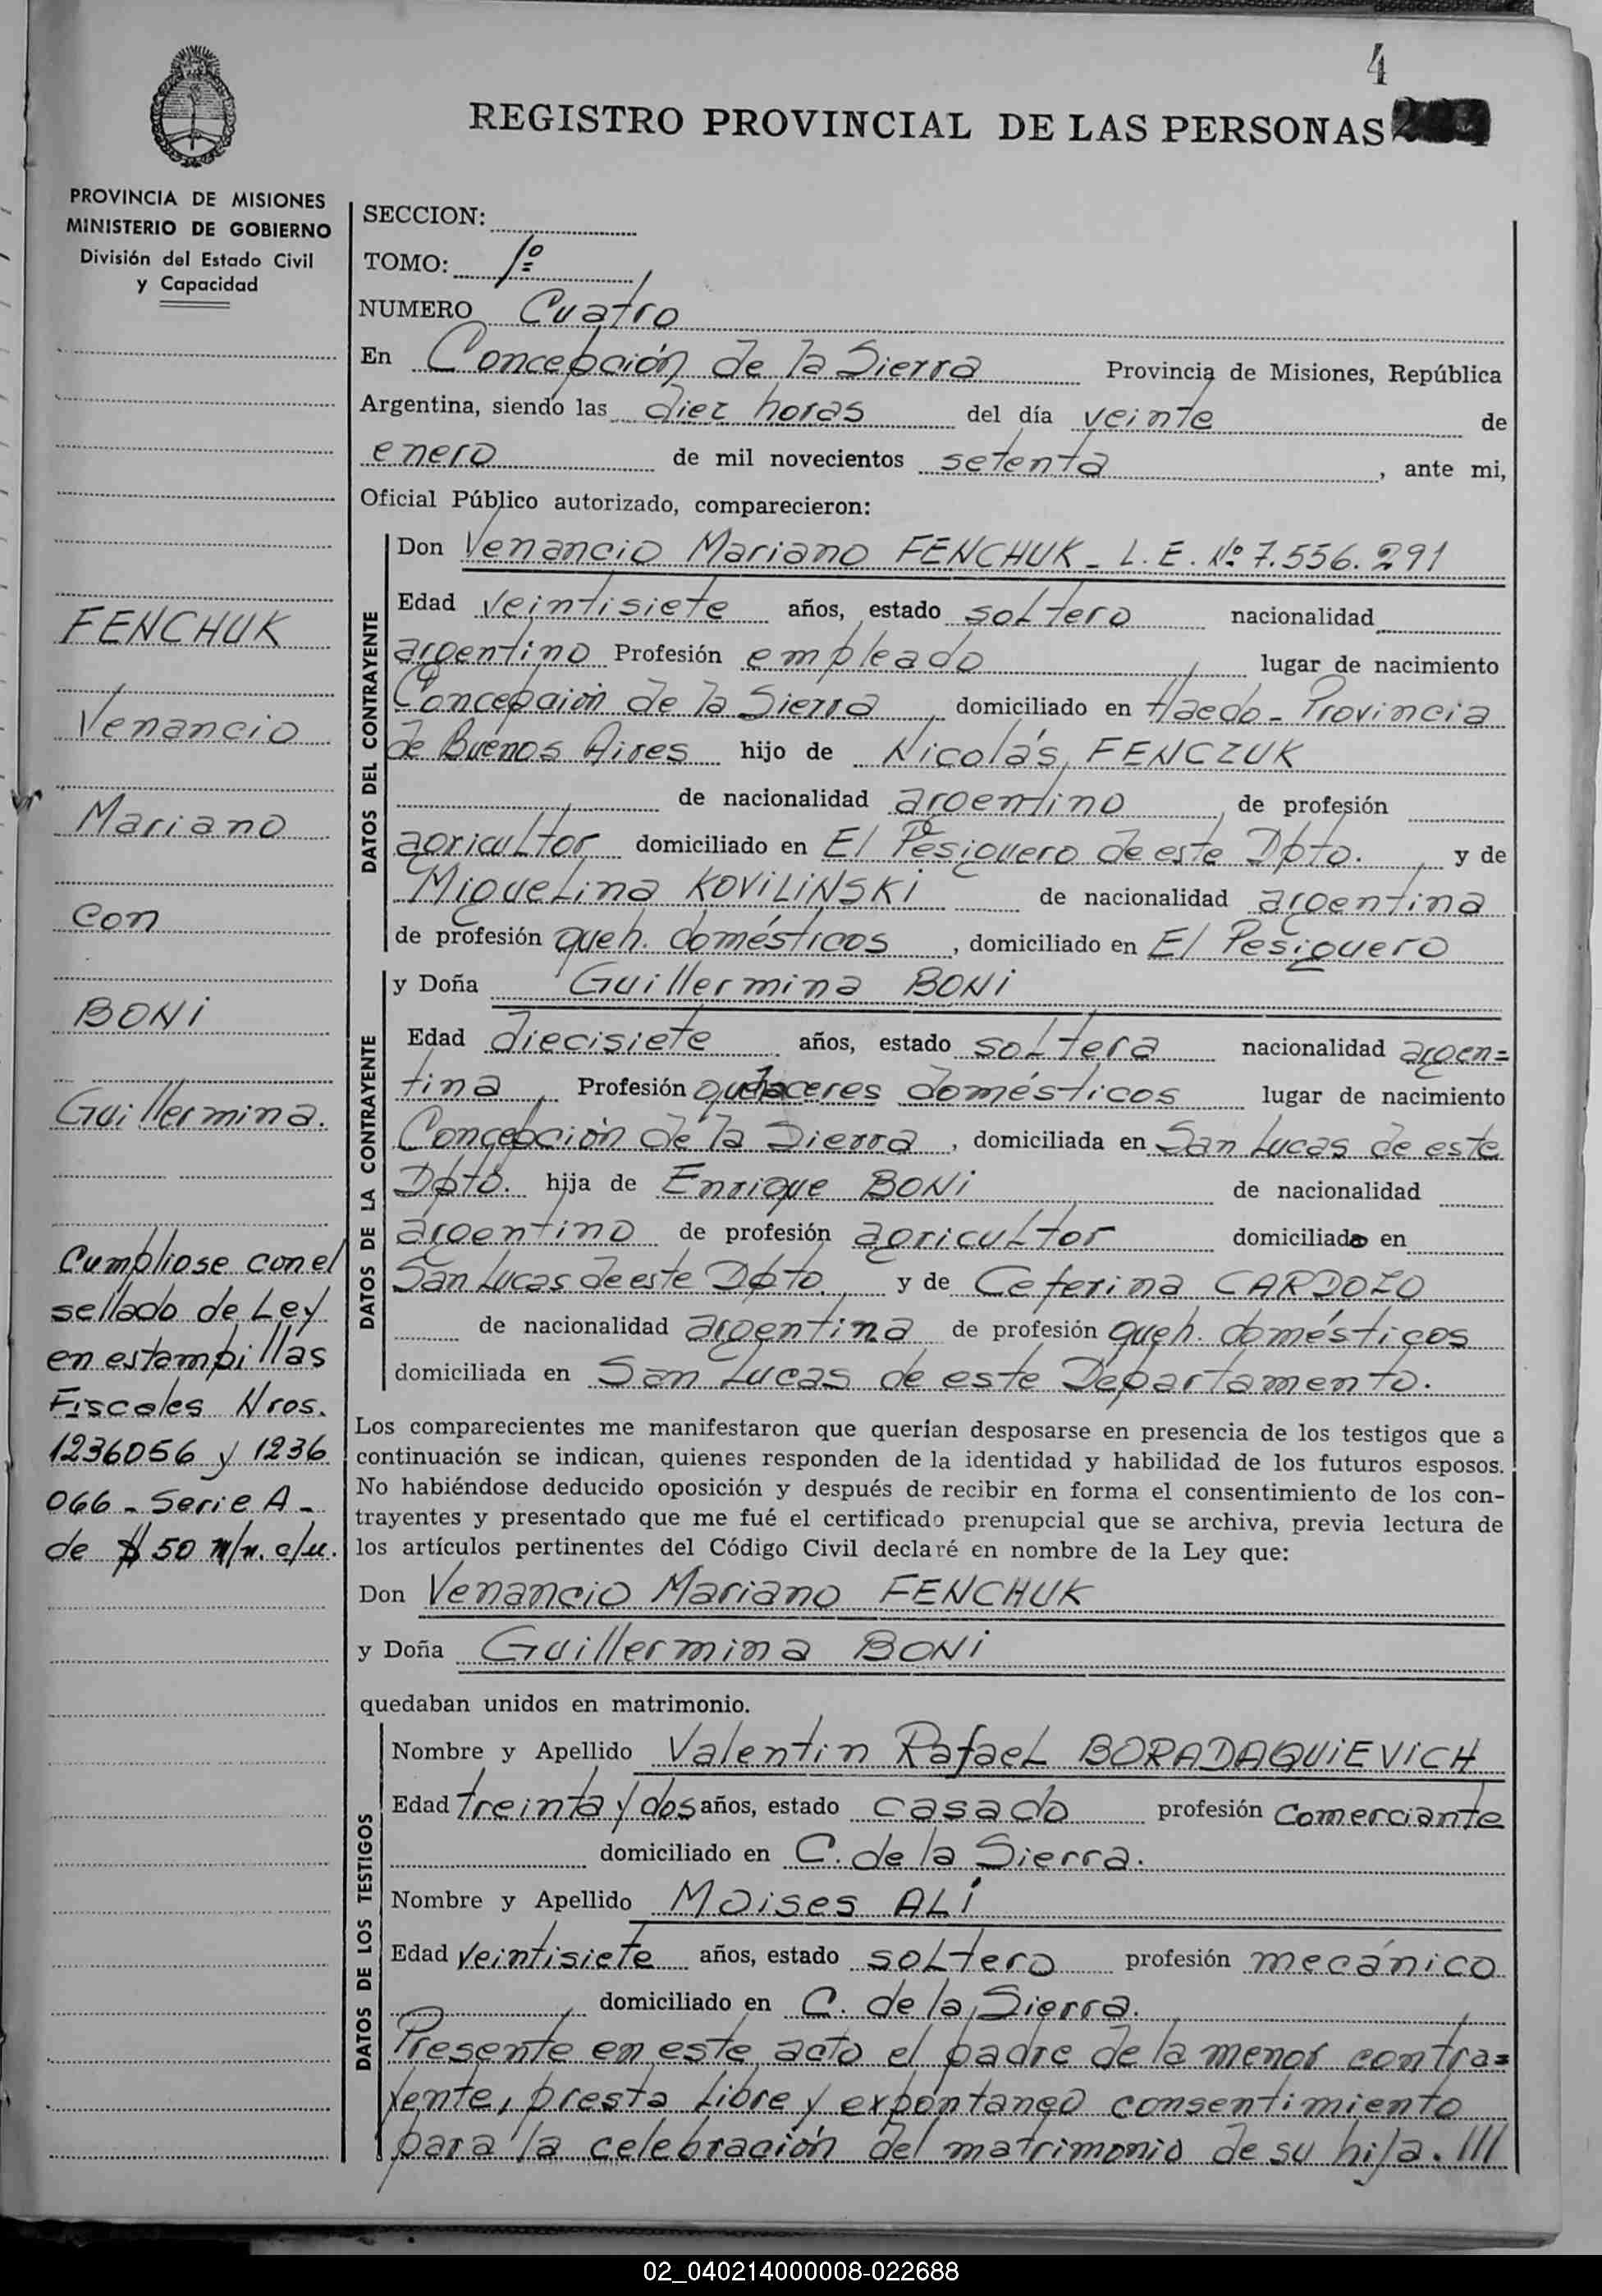 4
REGISTRO PROVINCIAL DE LAS PERSONAS
PROVINCIA DE MISIONES
MINISTERIO DE GOBIERNO
División del Estado Civil
y Capacidad
FENCHUK
Venancio
Mariano
con
BONI
Guillermina.
Cumpliose con el
sellado de Ley
en estampillas
Fiscales Nros.
1236056 y 1236
066 - Serie A -
de $ 50 m/n. c/u.
SECCION:
TOMO: 1º
NUMERO Cuatro
En Concepción de la Sierra Provincia de Misiones, República
Argentina, siendo las diez horas del día veinte de
enero de mil novecientos setenta, ante mi,
Oficial Público autorizado, comparecieron:
DATOS DEL CONTRAYENTE
Don Venancio Mariano FENCHUK - L.E. Nº 7.556.291
Edad veintisiete años, estado soltero nacionalidad
argentino Profesión empleado lugar de nacimiento
Concepción de la Sierra, domiciliado en Haedo - Provincia
de Buenos Aires hijo de Nicolás FENCZUK
de nacionalidad argentino, de profesión
agricultor domiciliado en El Pesiguero de este Dpto., y de
Miguelina KOVILINSKI de nacionalidad argentina
de profesión queh. domésticos, domiciliado en El Pesiguero
DATOS DE LA CONTRAYENTE
y Doña Guillermina BONI
Edad diecisiete años, estado soltera nacionalidad argen=
tina, Profesión quehaceres domésticos lugar de nacimiento
Concepción de la Sierra, domiciliada en San Lucas de este
Dpto. hija de Enrique BONI de nacionalidad
argentino de profesión agricultor domiciliado en
San Lucas de este Dpto. y de Ceferina CARDOZO
de nacionalidad argentina de profesión queh. domésticos
domiciliada en San Lucas de este Departamento.
Los comparecientes me manifestaron que querían desposarse en presencia de los testigos que a
continuación se indican, quienes responden de la identidad y habilidad de los futuros esposos.
No habiéndose deducido oposición y después de recibir en forma el consentimiento de los con-
trayentes y presentado que me fué el certificado prenupcial que se archiva, previa lectura de
los artículos pertinentes del Código Civil declaré en nombre de la Ley que:
Don Venancio Mariano FENCHUK
y Doña Guillermina BONI
quedaban unidos en matrimonio.
DATOS DE LOS TESTIGOS
Nombre y Apellido Valentin Rafael BORADAQUIEVICH
Edad treinta y dos años, estado casado profesión comerciante
domiciliado en C. de la Sierra.
Nombre y Apellido Moises ALI
Edad veintisiete años, estado soltero profesión mecánico
domiciliado en C. de la Sierra.
Presente en este acto el padre de la menor contra=
yente, presta libre y expontaneo consentimiento
para la celebración del matrimonio de su hija. ///
02_040214000008-022688